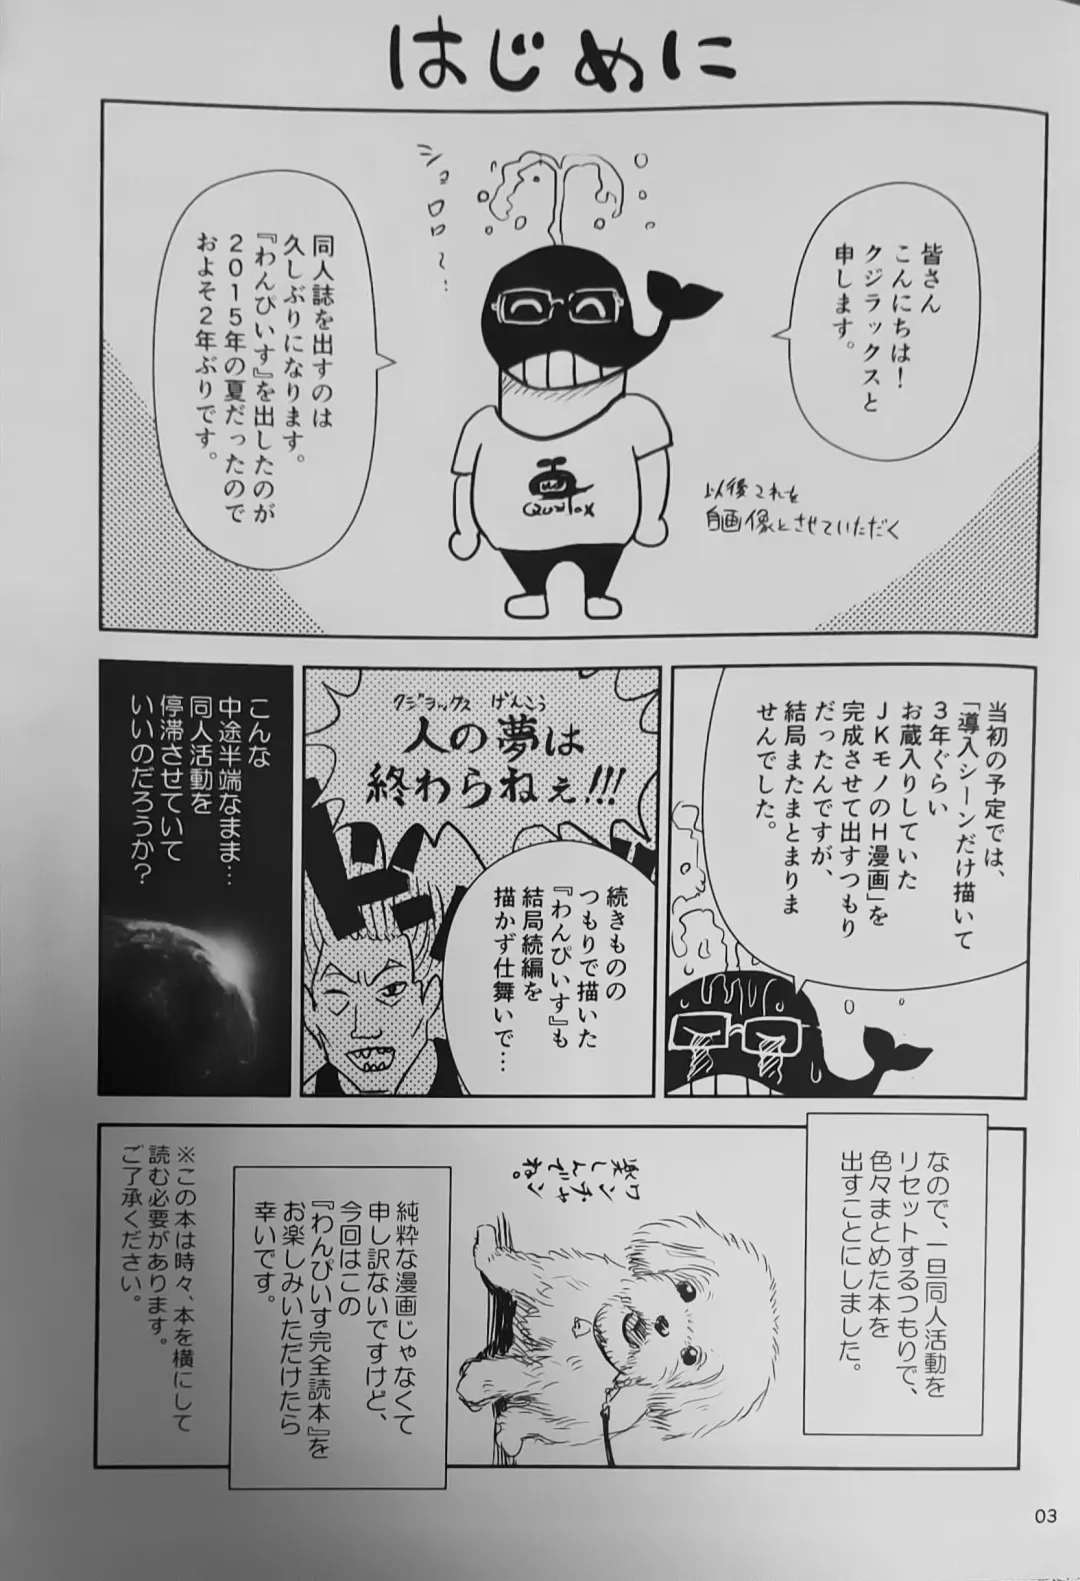 はじめに
皆さん
こんにちは！
クジラックスと
申します。
ショロロ〜…
Quzilax
以後これを
自画像とさせていただく
同人誌を出すのは
久しぶりになります。
『わんぴいす』を出したのが
2015年の夏だったので
およそ2年ぶりです。
当初の予定では、
「導入シーンだけ描いて
3年ぐらい
お蔵入りしていた
JKモノのH漫画」を
完成させて出すつもり
だったんですが、
結局またまとまりま
せんでした。
クジラックス げんこう
人の夢は
終わらねェ!!!
ドン
続きものの
つもりで描いた
『わんぴいす』も
結局続編を
描かず仕舞いで…
こんな
中途半端なまま…
同人活動を
停滞させていて
いいのだろうか？
なので、一旦同人活動を
リセットするつもりで、
色々まとめた本を
出すことにしました。
ワンチャン
楽しんでね。
純粋な漫画じゃなくて
申し訳ないですけど、
今回はこの
『わんぴいす完全読本』を
お楽しみいただけたら
幸いです。
※この本は時々、本を横にして
読む必要があります。
ご了承ください。
03